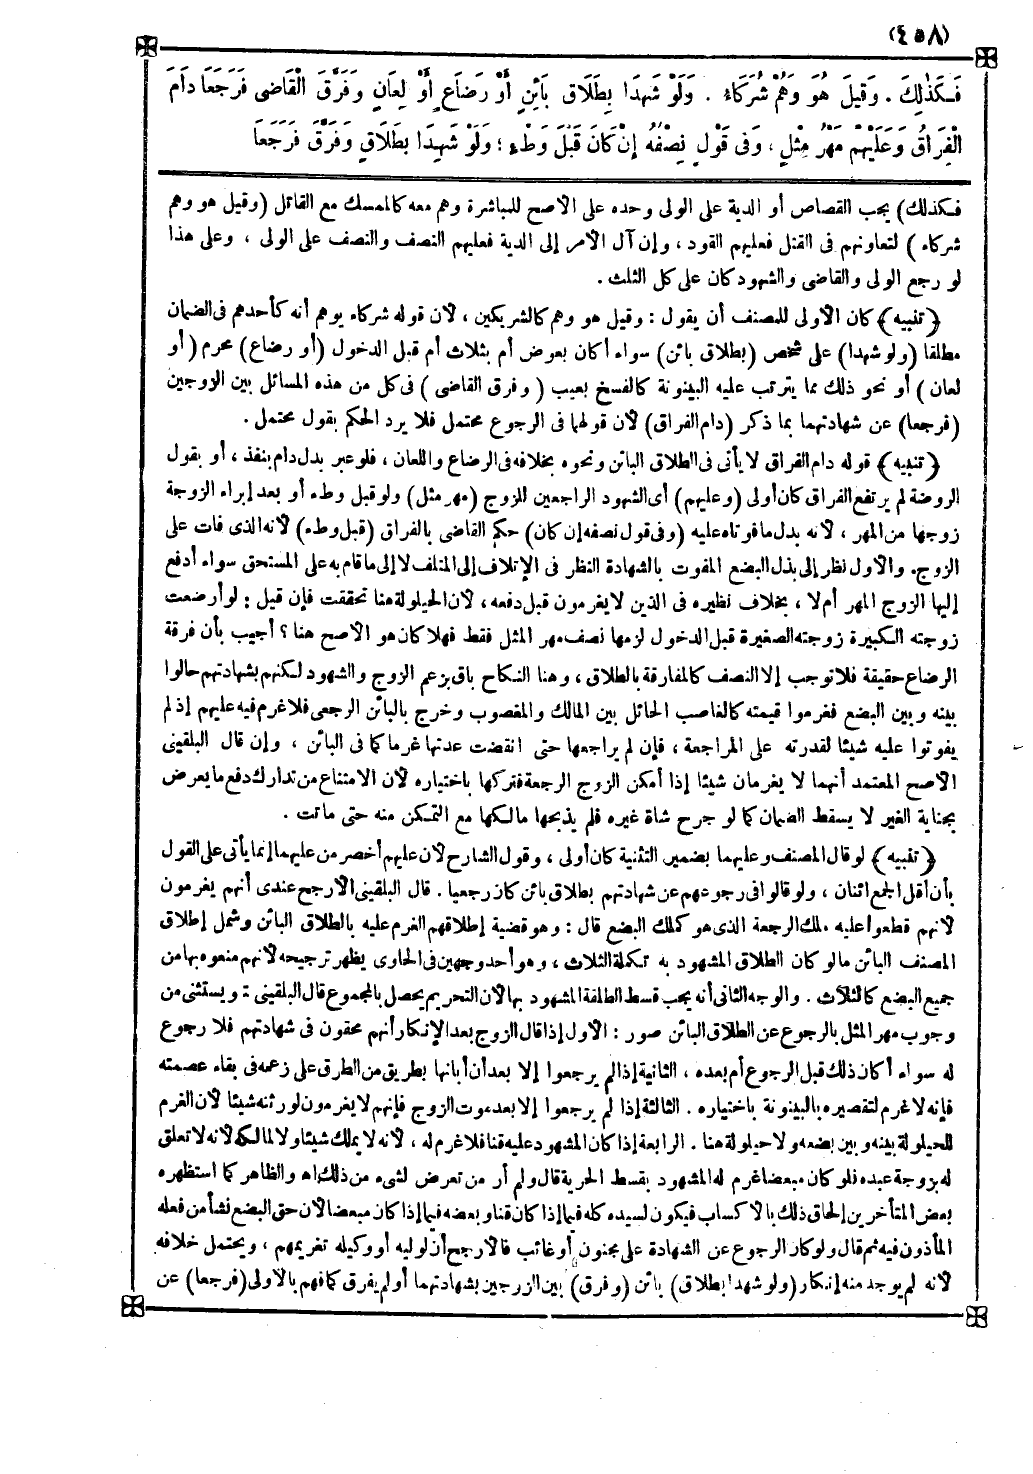 (٤٥٨)
فَكَذٰلِكَ . وَقِيلَ هُوَ وَهُمْ شُرَكَاءُ . وَلَوْ شَهِدَا بِطَلَاقٍ بَائِنٍ أَوْ رَضَاعٍ أَوْ لِعَانٍ وَفَرَّقَ الْقَاضِى فَرَجَعَا دَامَ
الْفِرَاقُ وَعَلَيْهِمْ مَهْرُ مِثْلٍ ، وَفِى قَوْلٍ نِصْفُهُ إِنْ كَانَ قَبْلَ وَطْءٍ ؛ وَلَوْ شَهِدَا بِطَلَاقٍ وَفَرَّقَ فَرَجَعَا
فكذلك) يجب القصاص أو الدية على الولى وحده على الأصح للمباشرة وهم معه كالممسك مع القاتل (وقيل هو وهم
شركاء ) لتعاونهم فى القتل فعليهم القود ، وإن آل الأمر إلى الدية فعليهم النصف والنصف على الولى ، وعلى هذا
لو رجع الولى والقاضى والشهود كان على كل الثلث .
﴿ تنبيه ﴾ كان الأولى للمصنف أن يقول : وقيل هو وهم كالشريكين ، لأن قوله شركاء يوهم أنه كأحدهم فى الضمان
مطلقا (ولو شهدا) على شخص (بطلاق بائن) سواء أكان بعوض أم بثلاث أم قبل الدخول (أو رضاع) محرم (أو
لعان ) أو نحو ذلك مما يترتب عليه البينونة كالفسخ بعيب ( وفرق القاضى ) فى كل من هذه المسائل بين الزوجين
(فرجعا) عن شهادتهما بما ذكر (دام الفراق) لأن قولهما فى الرجوع محتمل فلا يرد الحكم بقول محتمل .
﴿ تنبيه ﴾ قوله دام الفراق لا يأتى فى الطلاق البائن ونحوه بخلافه فى الرضاع واللعان ، فلو عبر بدل دام بنفذ ، أو بقول
الروضة لم يرتفع الفراق كان أولى (وعليهم) أى الشهود الراجعين للزوج (مهر مثل) ولو قبل وطء أو بعد إبراء الزوجة
زوجها من المهر ، لأنه بدل ما فوتاه عليه (وفى قول نصفه إن كان) حكم القاضى بالفراق (قبل وطء) لأنه الذى فات على
الزوج. والأول نظر إلى بذل البضع المفوت بالشهادة النظر فى الإتلاف إلى المتلف لا إلى ما قام به على المستحق سواء أدفع
إليها الزوج المهر أم لا ، بخلاف نظيره فى الذين لا يغرمون قبل دفعه ، لأن الحيلولة هنا تحققت فإن قيل : لو أرضعت
زوجته الكبيرة زوجته الصغيرة قبل الدخول لزمها نصف مهر المثل فقط فهلا كان هو الأصح هنا ؟ أجيب بأن فرقة
الرضاع حقيقة فلا توجب إلا النصف كالمفارقة بالطلاق ، وهنا النكاح باق بزعم الزوج والشهود لكنهم بشهادتهم حالوا
بينه وبين البضع فغرموا قيمته كالغاصب الحائل بين المالك والمغصوب وخرج بالبائن الرجعى فلا غرم فيه عليهم إذ لم
يفوتوا عليه شيئا لقدرته على المراجعة ، فإن لم يراجعها حتى انقضت عدتها غرما كما فى البائن ، وإن قال البلقينى
الأصح المعتمد أنهما لا يغرمان شيئا إذا أمكن الزوج الرجعة فتركها باختياره لأن الامتناع من تدارك دفع ما يعرض
بجناية الغير لا يسقط الضمان كما لو جرح شاة غيره فلم يذبحها مالكها مع التمكن منه حتى ماتت .
﴿ تنبيه ﴾ لو قال المصنف وعليهما بضمير التثنية كان أولى ، وقول الشارح لأن عليهم أخصر من عليهما إنما يأتى على القول
بأن أقل الجمع اثنان ، ولو قالوا فى رجوعهم عن شهادتهم بطلاق بائن كان رجعيا . قال البلقينى الأرجح عندى أنهم يغرمون
لأنهم قطعوا عليه ملك الرجعة الذى هو كملك البضع قال : وهو قضية إطلاقهم الغرم عليه بالطلاق البائن وشمل إطلاق
المصنف البائن ما لو كان الطلاق المشهود به تكملة الثلاث ، وهو أحد وجهين فى الحاوى يظهر ترجيحه لأنهم منعوه بها من
جميع البضع كالثلاث . والوجه الثانى أنه يجب قسط الطلقة المشهود بها لأن التحريم يحصل بالمجموع قال البلقينى : ويستثنى من
وجوب مهر المثل بالرجوع عن الطلاق البائن صور : الأولى إذا قال الزوج بعد الإنكار أنهم محقون فى شهادتهم فلا رجوع
له سواء أكان ذلك قبل الرجوع أم بعده ، الثانية إذا لم يرجعوا إلا بعد أن أبانها بطريق من الطرق على زعمه فى بقاء عصمته
فإنه لا غرم لتقصيره بالبينونة باختياره . الثالثة إذا لم يرجعوا إلا بعد موت الزوج فإنهم لا يغرمون لورثته شيئا لأن الغرم
للحيلولة بينه وبين بضعه ولا حيلولة هنا . الرابعة إذا كان المشهود عليه قنا فلا غرم له ، لأنه لا يملك شيئا ولا لمالكه لأنه لا تعلق
له بزوجة عبده فلو كان مبعضا غرم له المشهود بقسط الحرية قال ولم أر من تعرض لشىء من ذلك اه والظاهر كما استظهره
بعض المتأخرين إلحاق ذلك بالاكساب فيكون لسيده كله فيما إذا كان قنا وبعضه فيما إذا كان مبعضا لأن حق البضع نشأ من فعله
المأذون فيه ثم قال ولو كان الرجوع عن الشهادة على مجنون أو غائب فالأرجح أن لوليه أو وكيله تغريمهم ، ويحتمل خلافه
لأنه لم يوجد منه إنكار (ولو شهدا بطلاق) بائن (وفرق) بين الزوجين بشهادتهما أو لم يفرق كما فهم بالأولى (فرجعا) عن